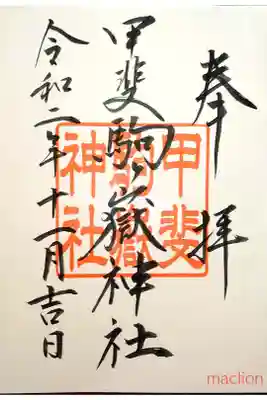 奉拝
甲斐駒ヶ嶽神社
甲斐
駒嶽
神社
令和二年十一月吉日
maclion